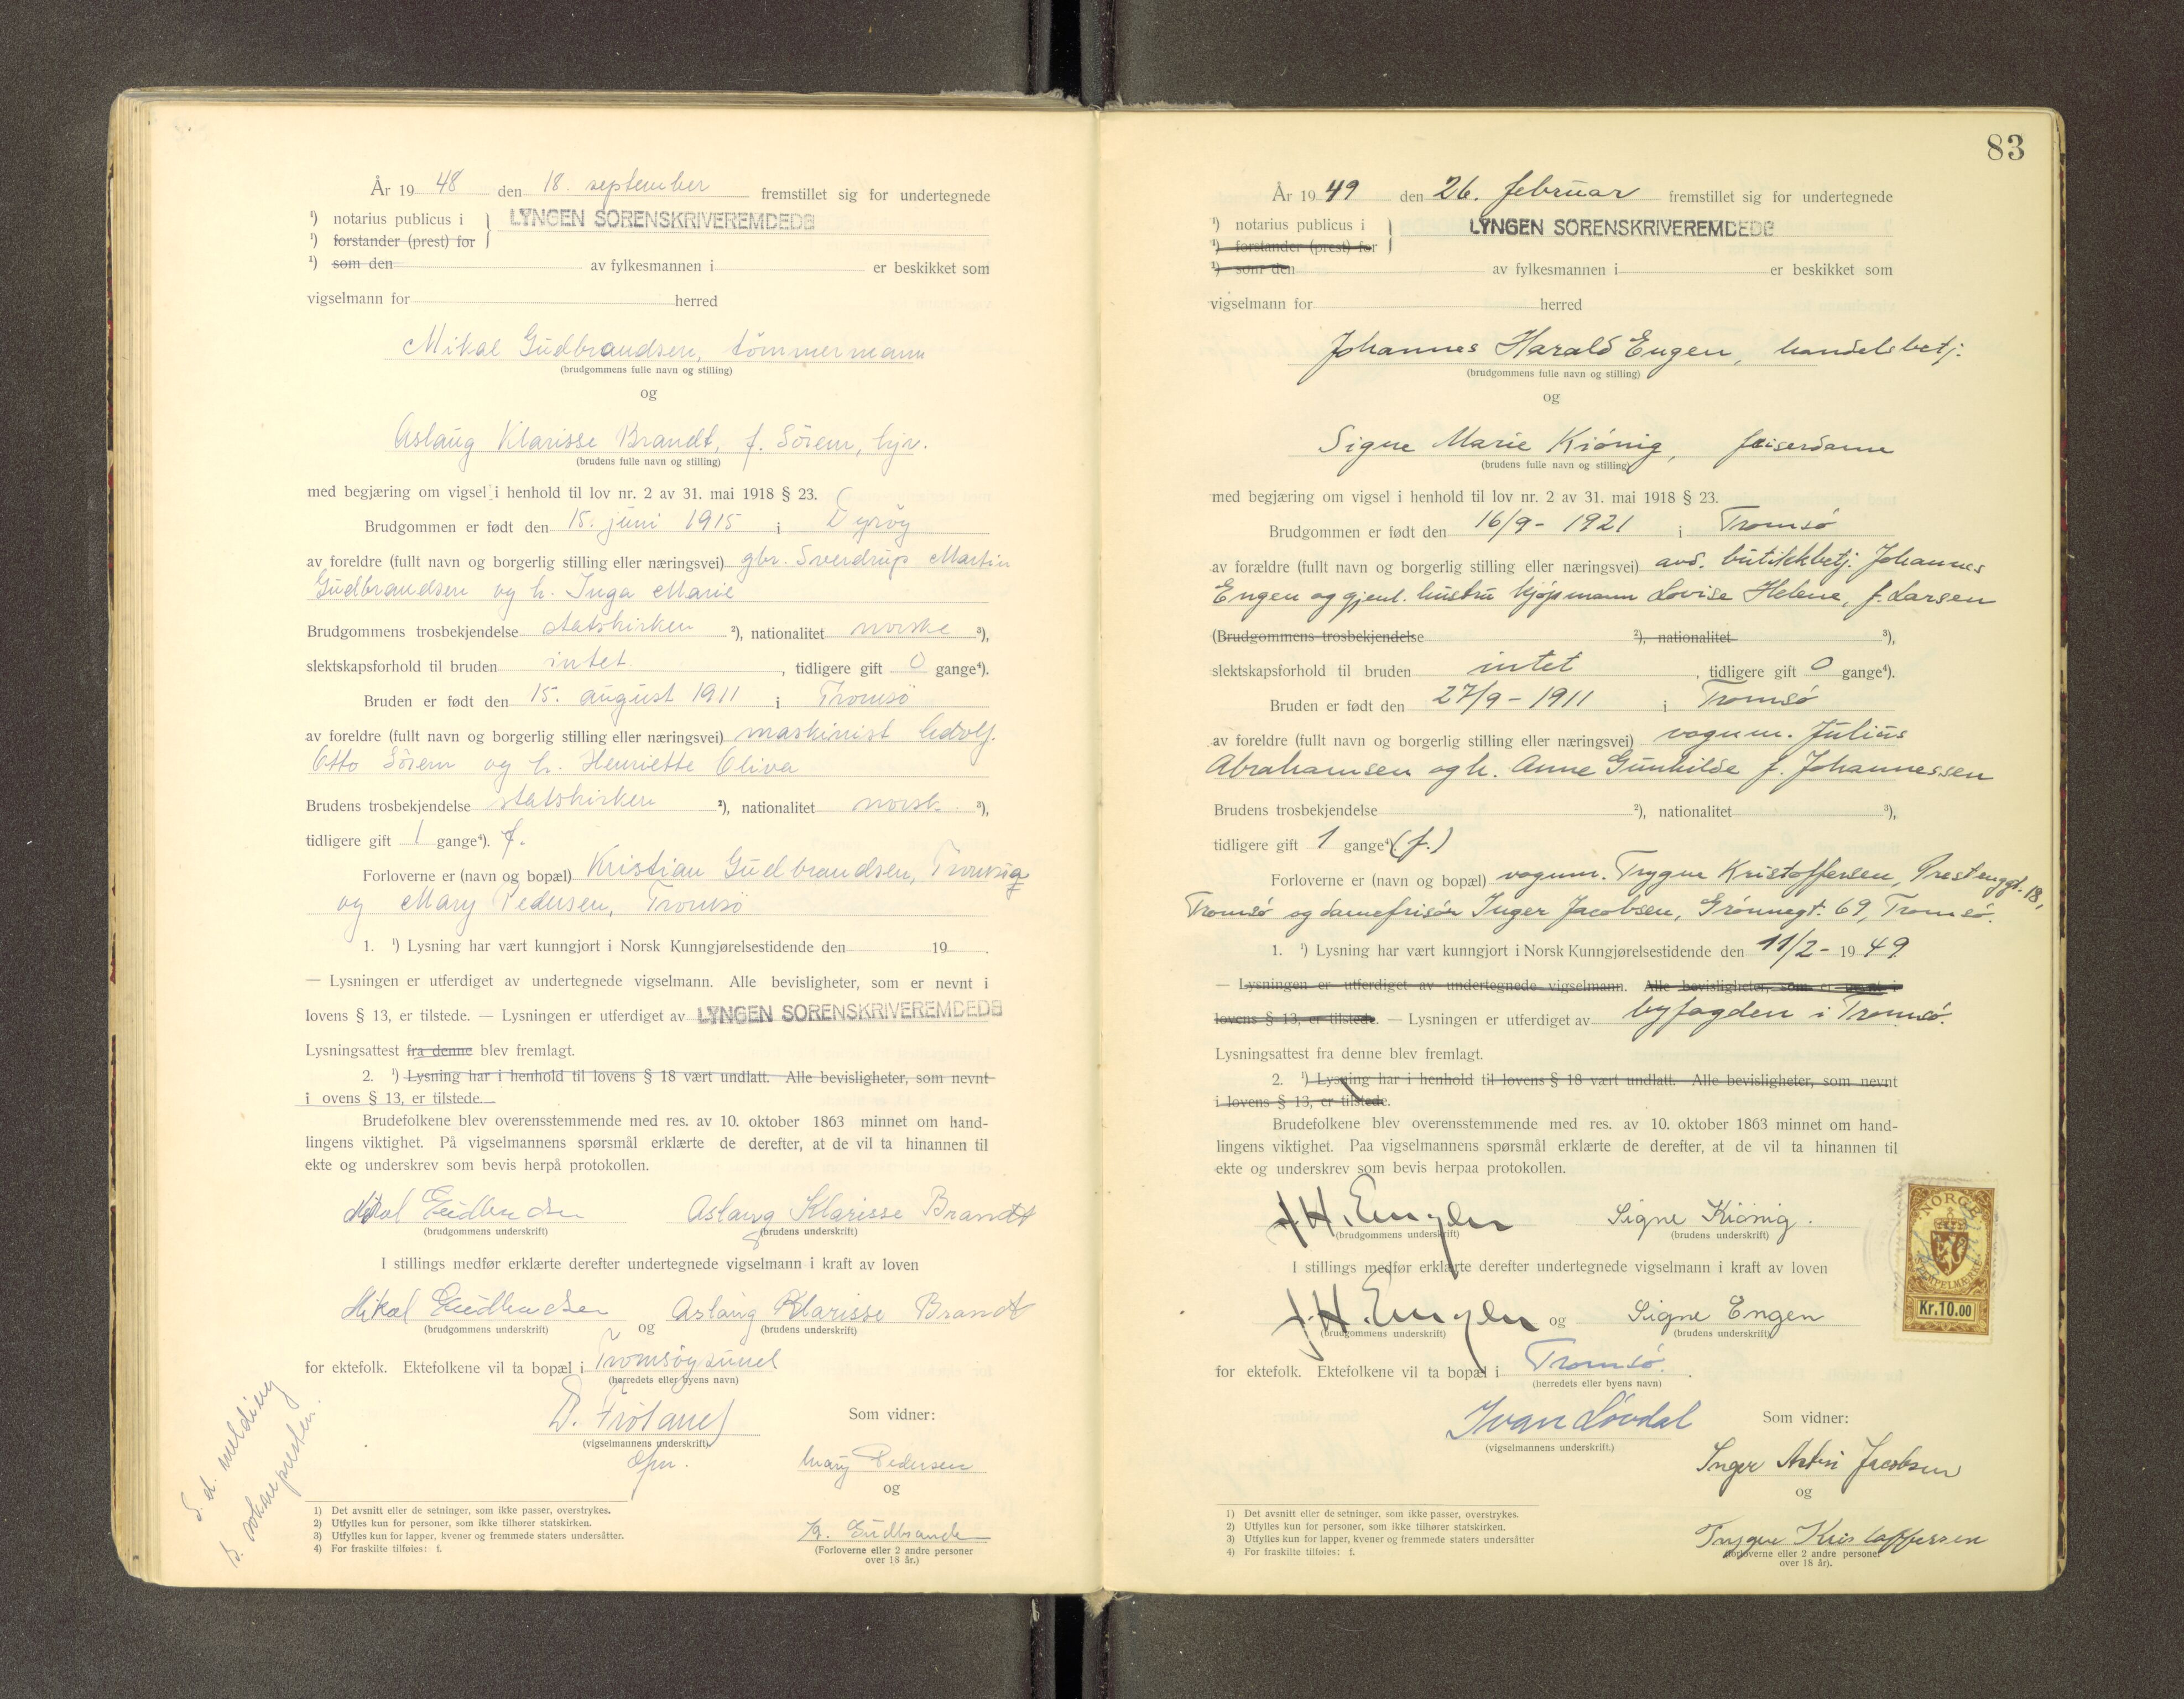 År 19 48 den 18. september fremstillet sig for undertegnede
¹) notarius publicus i } LYNGEN SORENSKRIVEREMBEDE
¹) forstander (prest) for
¹) som den av fylkesmannen i er beskikket som
vigselmann for herred
Mikal Gudbrandsen, tömmermann
(brudgommens fulle navn og stilling)
og
Aslaug Klarisse Brandt, f. Sörem, hjv.
(brudens fulle navn og stilling)
med begjæring om vigsel i henhold til lov nr. 2 av 31. mai 1918 § 23.
Brudgommen er født den 15. juni 1915 i Dyröy
av foreldre (fullt navn og borgerlig stilling eller næringsvei) gbr. Sverdrup Martin
Gudbrandsen og h. Inga Marie
Brudgommens trosbekjendelse statskirken ²), nationalitet norske ³),
slektskapsforhold til bruden intet, tidligere gift 0 gange⁴).
Bruden er født den 15. august 1911 i Tromsö
av foreldre (fullt navn og borgerlig stilling eller næringsvei) maskinist Adolf
Otto Sörem og h. Henriette Oliva
Brudens trosbekjendelse statskirken ²), nationalitet norsk. ³),
tidligere gift 1 gange⁴). f.
Forloverne er (navn og bopæl) Kristian Gudbrandsen,
og Mary Pedersen, Tromsö
1. ¹) Lysning har vært kunngjort i Norsk Kunngjørelsestidende den 19 .
— Lysningen er utferdiget av undertegnede vigselmann. Alle bevisligheter, som er nevnt i
lovens § 13, er tilstede. — Lysningen er utferdiget av LYNGEN SORENSKRIVEREMBEDE
Lysningsattest fra denne blev fremlagt.
2. ¹) Lysning har i henhold til lovens § 18 vært undlatt. Alle bevisligheter, som nevnt
i ovens § 13, er tilstede.
Brudefolkene blev overensstemmende med res. av 10. oktober 1863 minnet om hand-
lingens viktighet. På vigselmannens spørsmål erklærte de derefter, at de vil ta hinannen til
ekte og underskrev som bevis herpå protokollen.
Mikal Gudbrandsen Aslaug Klarisse Brandt
(brudgommens underskrift) (brudens underskrift)
I stillings medfør erklærte derefter undertegnede vigselmann i kraft av loven
Mikal Gudbrandsen og Aslaug Klarisse Brandt
(brudgommens underskrift) (brudens underskrift)
for ektefolk. Ektefolkene vil ta bopæl i Tromsöysund
(herredets eller byens navn)
Som vidner:
(vigselmannens underskrift)
Mary Pedersen
og
(Forloverne eller 2 andre personer
over 18 år.)
S. d. melding
t. soknepresten.
1) Det avsnitt eller de setninger, som ikke passer, overstrykes.
2) Utfylles kun for personer, som ikke tilhører statskirken.
3) Utfylles kun for lapper, kvener og fremmede staters undersåtter.
4) For fraskilte tilføies: f.
83
År 19 49 den 26. februar fremstillet sig for undertegnede
¹) notarius publicus i } LYNGEN SORENSKRIVEREMBEDE
¹) forstander (prest) for
¹) som den av fylkesmannen i er beskikket som
vigselmann for herred
Johannes Harald Engen, handelsbetj.
(brudgommens fulle navn og stilling)
og
Signe Marie Kiönig, friserdame
(brudens fulle navn og stilling)
med begjæring om vigsel i henhold til lov nr. 2 av 31. mai 1918 § 23.
Brudgommen er født den 16/9 - 1921 i Tromsö
av forældre (fullt navn og borgerlig stilling eller næringsvei) avd. butikkbetj. Johannes
Engen og gjenl. hustru kjöpmann Lovise Helene, f. Larsen
(Brudgommens trosbekjendelse ²), nationalitet ³),
slektskapsforhold til bruden intet, tidligere gift 0 gange⁴).
Bruden er født den 27/9 - 1911 i Tromsö
av foreldre (fullt navn og borgerlig stilling eller næringsvei) vognm. Julius
Abrahamsen og h. Anne Gunhilde f. Johannessen
Brudens trosbekjendelse ²), nationalitet ³),
tidligere gift 1 gange⁴) (f.)
Forloverne er (navn og bopæl) vognm. Trygve Kristoffersen, Prestenggt. 18,
Tromsö og damefrisör Inger Jacobsen, Grönnegt. 69, Tromsö.
1. ¹) Lysning har vært kunngjort i Norsk Kunngjørelsestidende den 11/2 - 19 49.
— Lysningen er utferdiget av undertegnede vigselmann. Alle bevisligheter, som er nevnt i
lovens § 13, er tilstede. — Lysningen er utferdiget av byfogden i Tromsö.
Lysningsattest fra denne blev fremlagt.
2. ¹) Lysning har i henhold til lovens § 18 vært undlatt. Alle bevisligheter, som nevnt
i lovens § 13, er tilstede.
Brudefolkene blev overensstemmende med res. av 10. oktober 1863 minnet om hand-
lingens viktighet. Paa vigselmannens spørsmål erklærte de derefter, at de vil ta hinannen til
ekte og underskrev som bevis herpaa protokollen.
J.H. Engen Signe Kiönig.
(brudgommens underskrift) (brudens underskrift)
NORGE
STEMPELMÆRKE
Kr.10.00
I stillings medfør erklærte derefter undertegnede vigselmann i kraft av loven
J.H. Engen og Signe Engen
(brudgommens underskrift) (brudens underskrift)
for ektefolk. Ektefolkene vil ta bopæl i Tromsö.
(herredets eller byens navn)
Ivan Lövdal Som vidner:
(vigselmannens underskrift.)
Inger Jacobsen
og
Trygve Kristoffersen
(Forloverne eller 2 andre personer
over 18 år).
1) Det avsnitt eller de setninger, som ikke passer, overstrykes.
2) Utfylles kun for personer, som ikke tilhører statskirken.
3) Utfylles kun for lapper, kvener og fremmede staters undersåtter
4) For fraskilte tilføies: f.